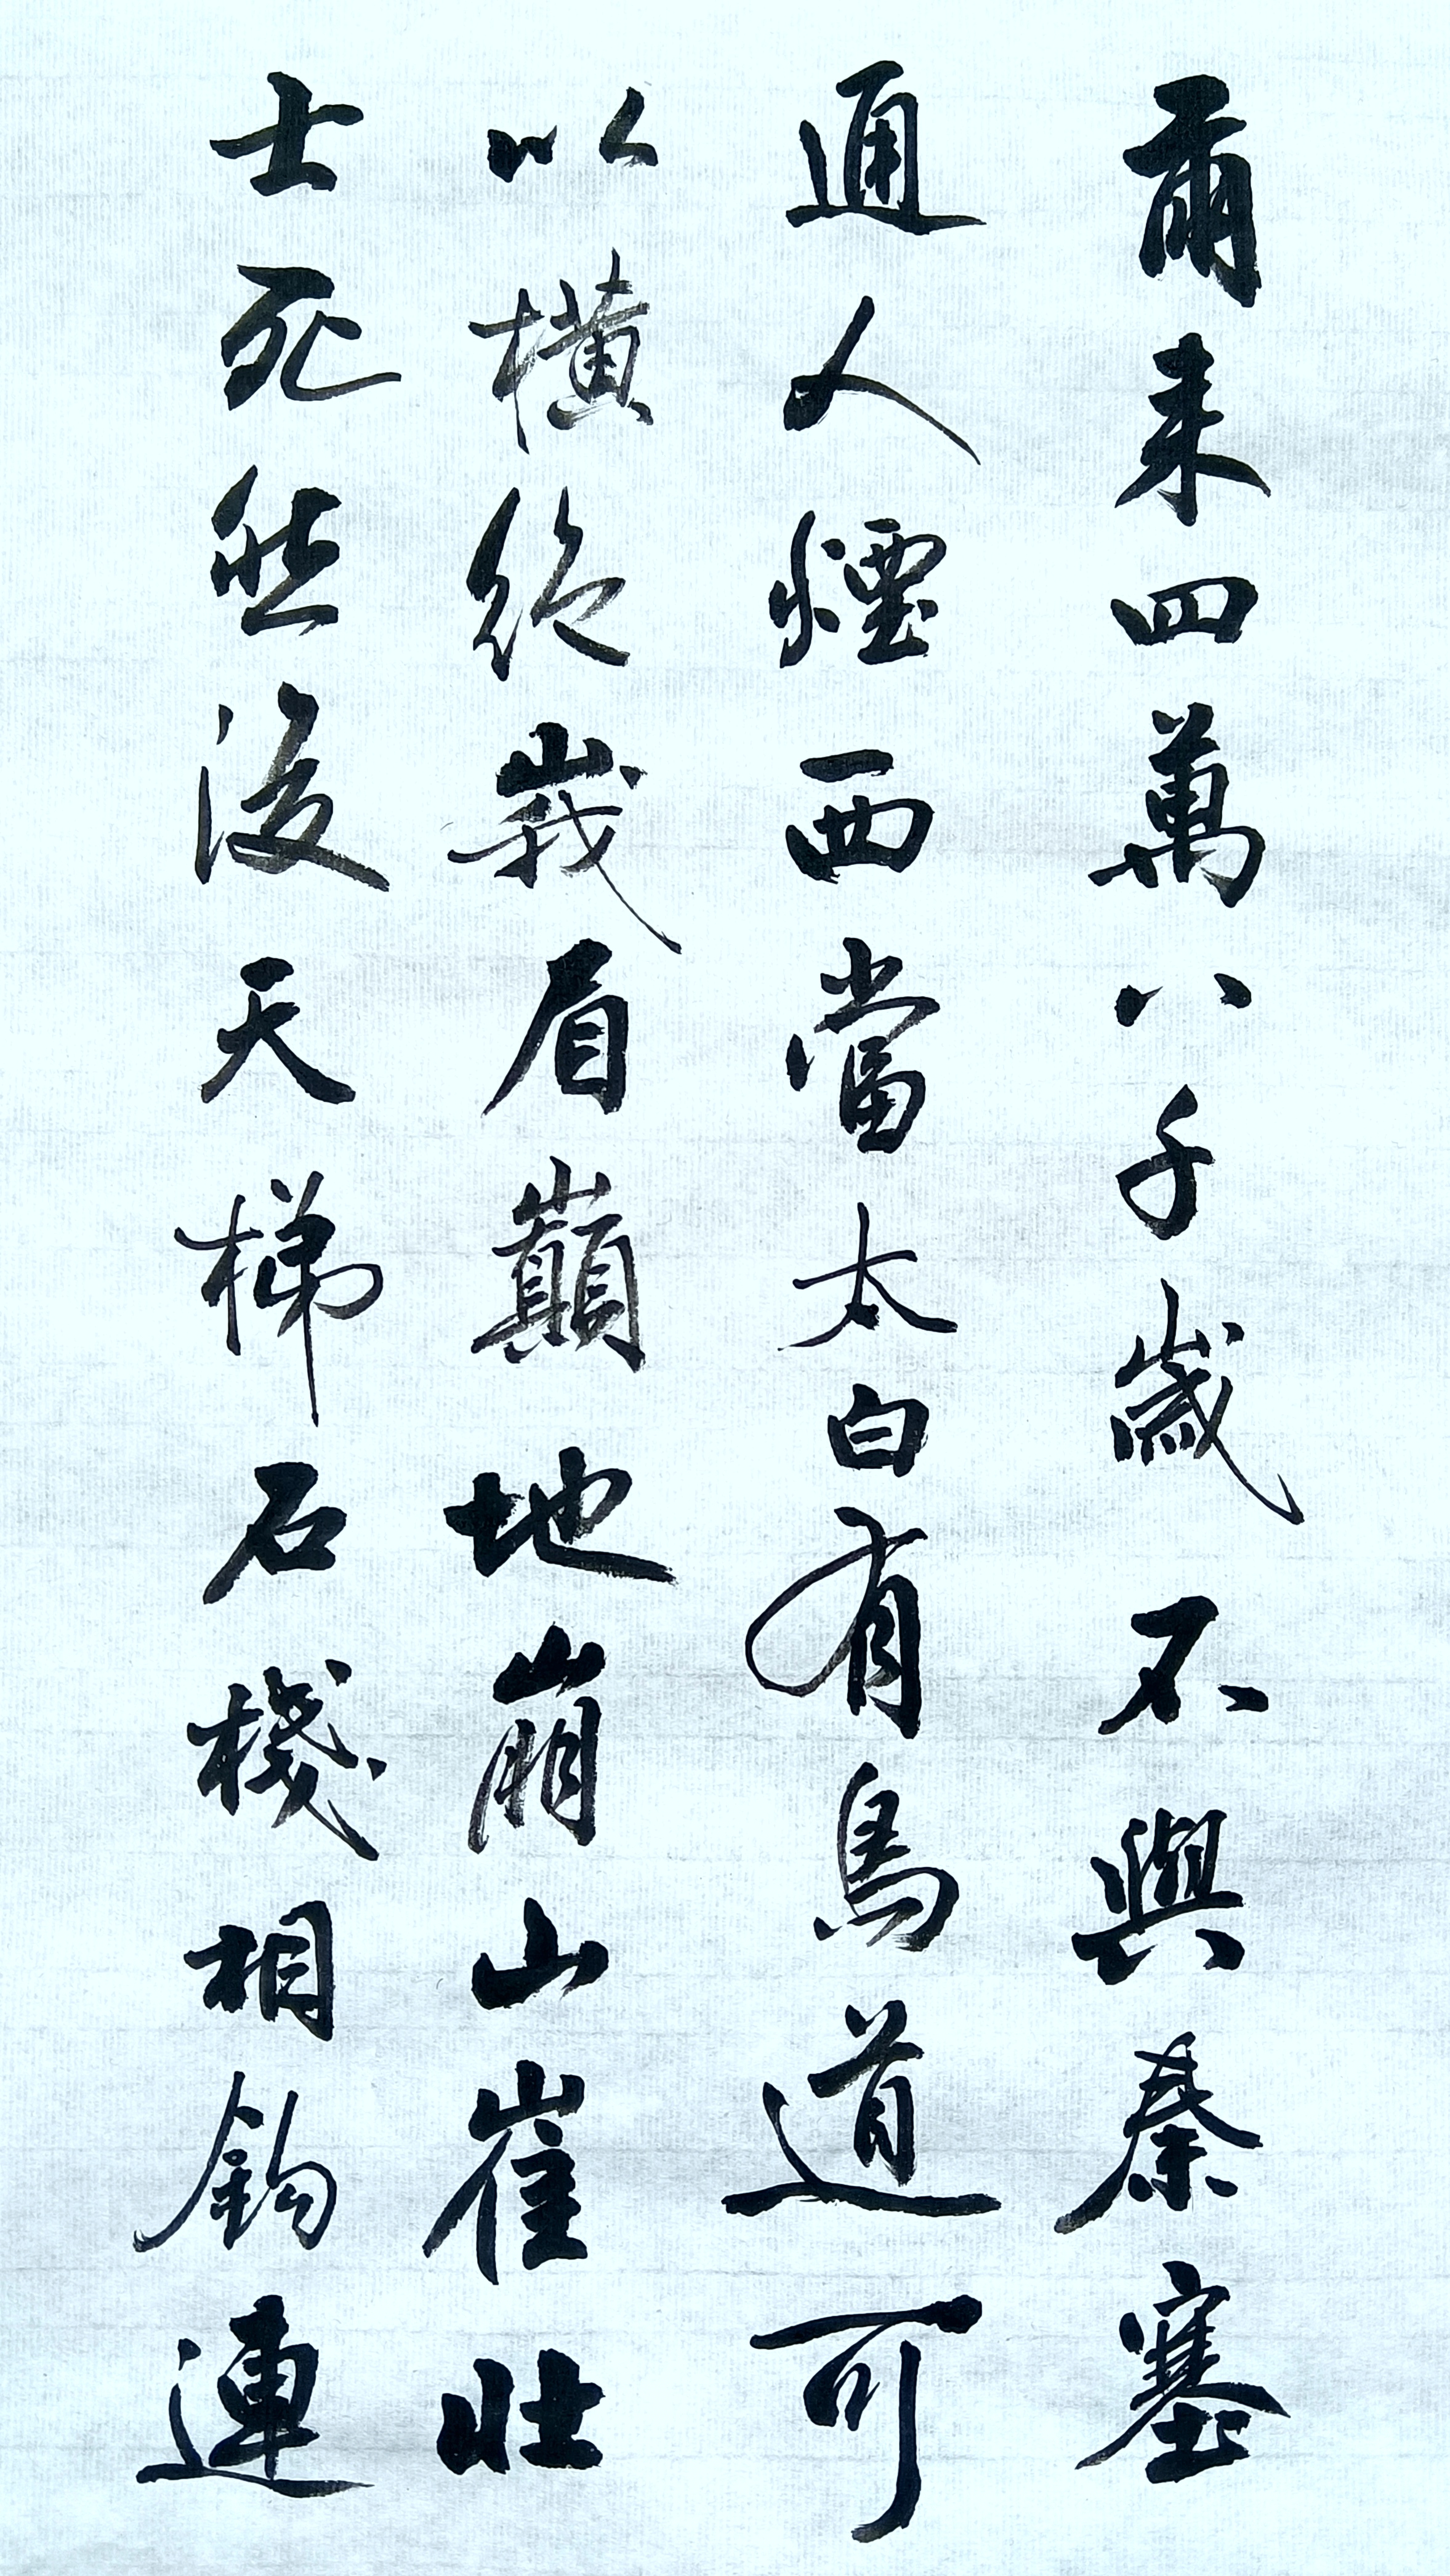 爾来四萬八千歲不與秦塞
通人煙西當太白有鳥道可
以橫絕峩眉巔地崩山崔壯
士死然後天梯石棧相鉤連